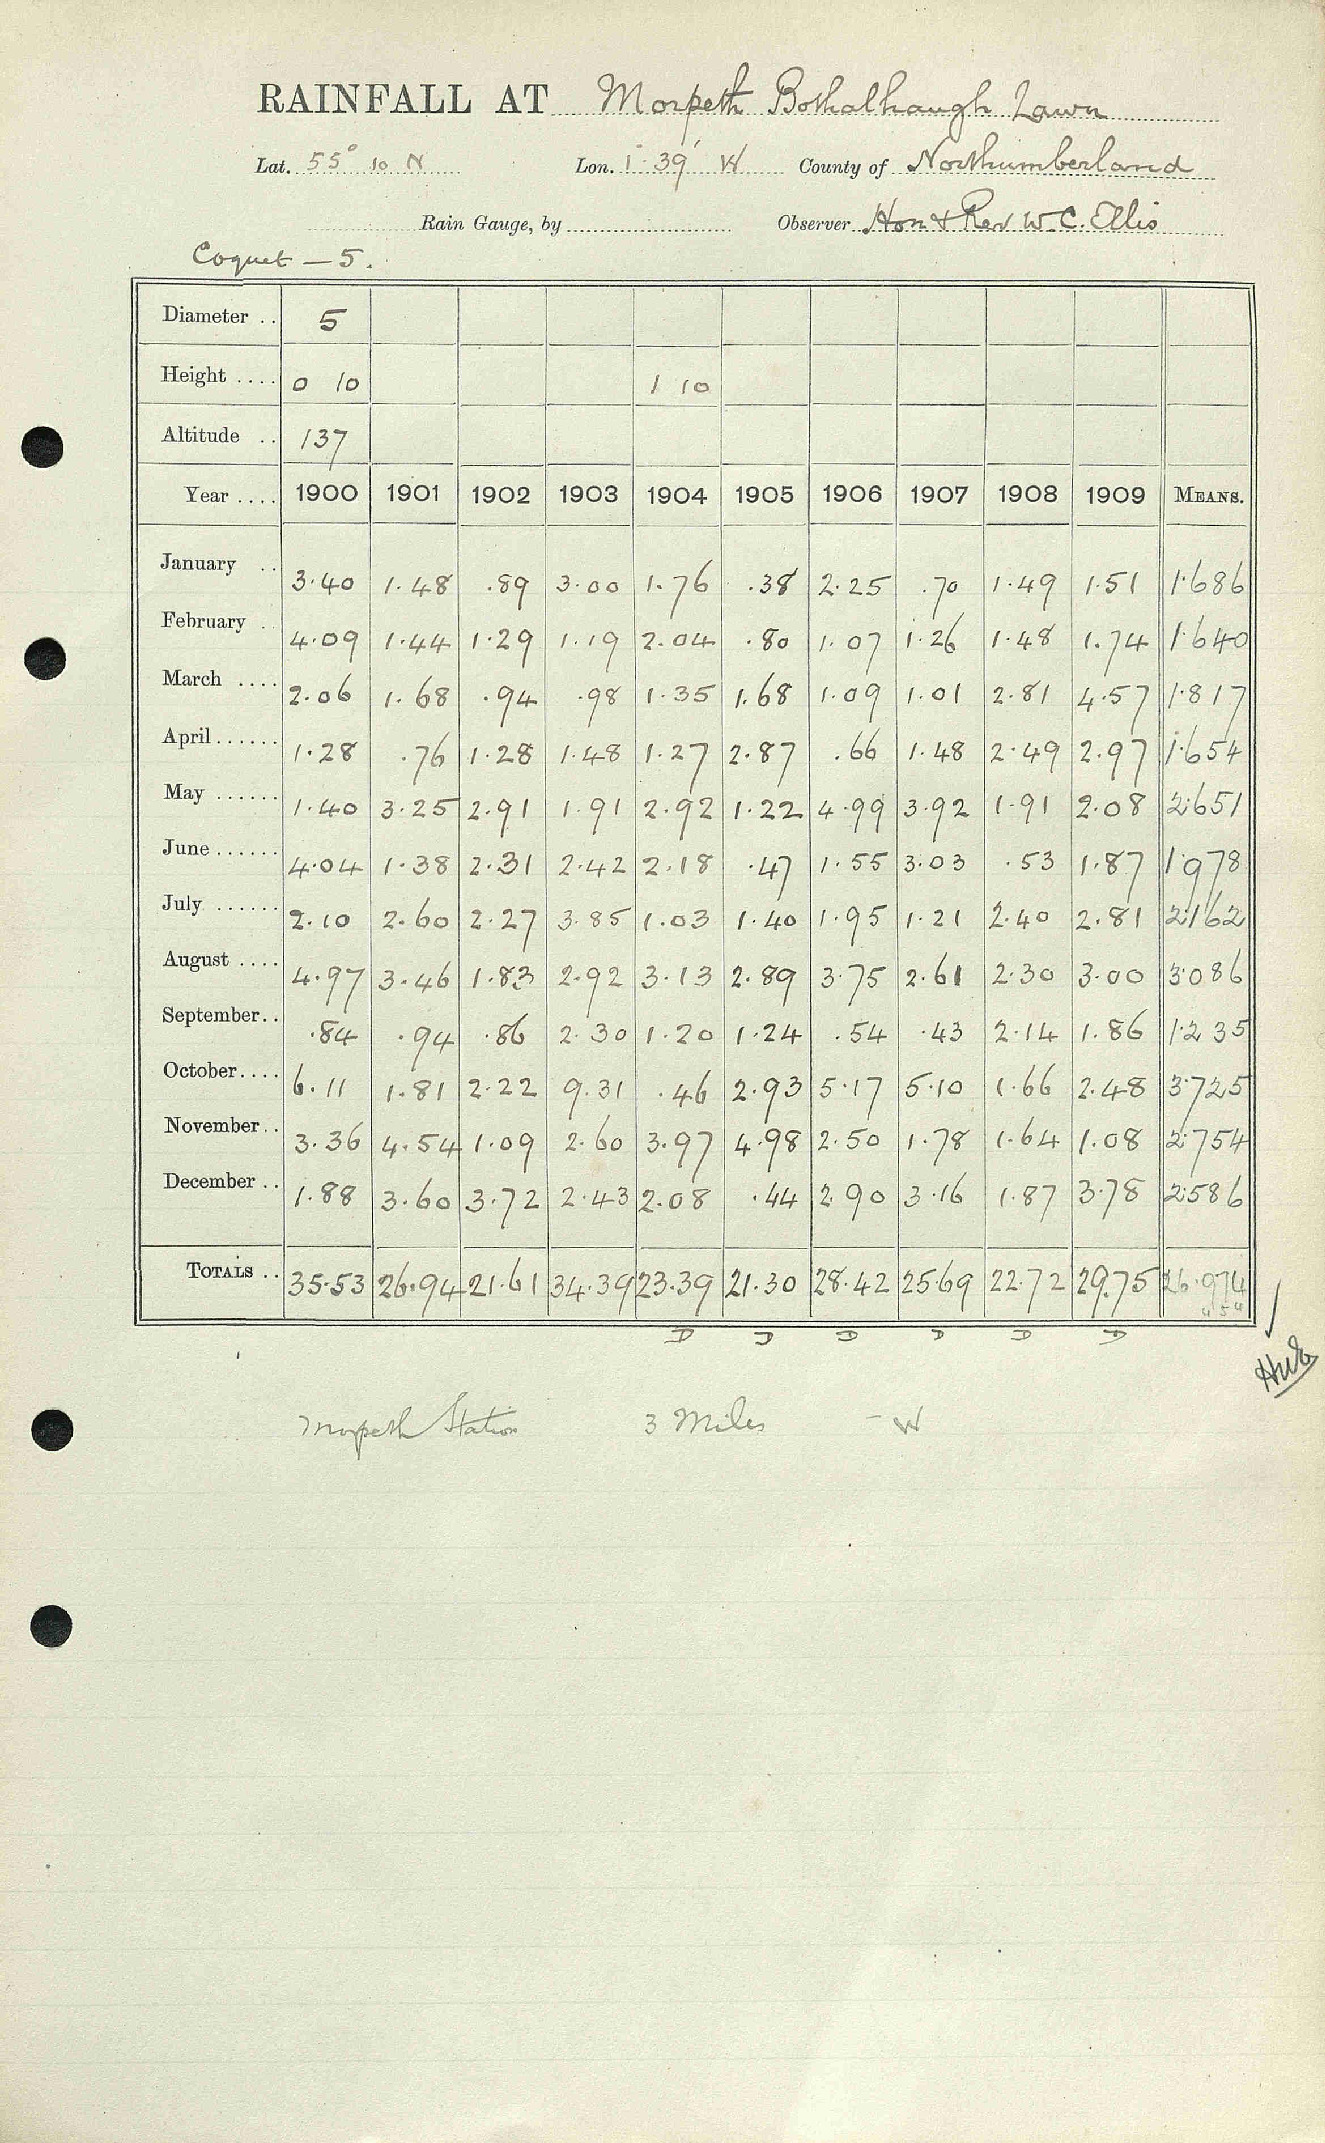 RAINFALL AT Morpeth Bothalhaugh Lawn
Lat. 55° 10 N Lon. 1° 39' W County of Northumberland
Rain Gauge, by Observer Hon & Rev W. C. Ellis
Coquet – 5.
Diameter .. 5
Height .... 0 10 1 10
Altitude .. 137
Year .... 1900 1901 1902 1903 1904 1905 1906 1907 1908 1909 MEANS.
January .. 3.40 1.48 .89 3.00 1.76 .38 2.25 .70 1.49 1.51 1.686
February . 4.09 1.44 1.29 1.19 2.04 .80 1.07 1.26 1.48 1.74 1.640
March .... 2.06 1.68 .94 .98 1.35 1.68 1.09 1.01 2.81 4.57 1.817
April...... 1.28 .76 1.28 1.48 1.27 2.87 .66 1.48 2.49 2.97 1.654
May ...... 1.40 3.25 2.91 1.91 2.92 1.22 4.99 3.92 1.91 2.08 2.651
June ...... 4.04 1.38 2.31 2.42 2.18 .47 1.55 3.03 .53 1.87 1.978
July ...... 2.10 2.60 2.27 3.85 1.03 1.40 1.95 1.21 2.40 2.81 2.162
August .... 4.97 3.46 1.83 2.92 3.13 2.89 3.75 2.61 2.30 3.00 3.086
September.. .84 .94 .86 2.30 1.20 1.24 .54 .43 2.14 1.86 1.235
October.... 6.11 1.81 2.22 9.31 .46 2.93 5.17 5.10 1.66 2.48 3.725
November.. 3.36 4.54 1.09 2.60 3.97 4.98 2.50 1.78 1.64 1.08 2.754
December .. 1.88 3.60 3.72 2.43 2.08 .44 2.90 3.16 1.87 3.78 2.586
TOTALS .. 35.53 26.94 21.61 34.39 23.39 21.30 28.42 25.69 22.72 29.75 26.974
D D D D D D
Morpeth Station 3 Miles – W